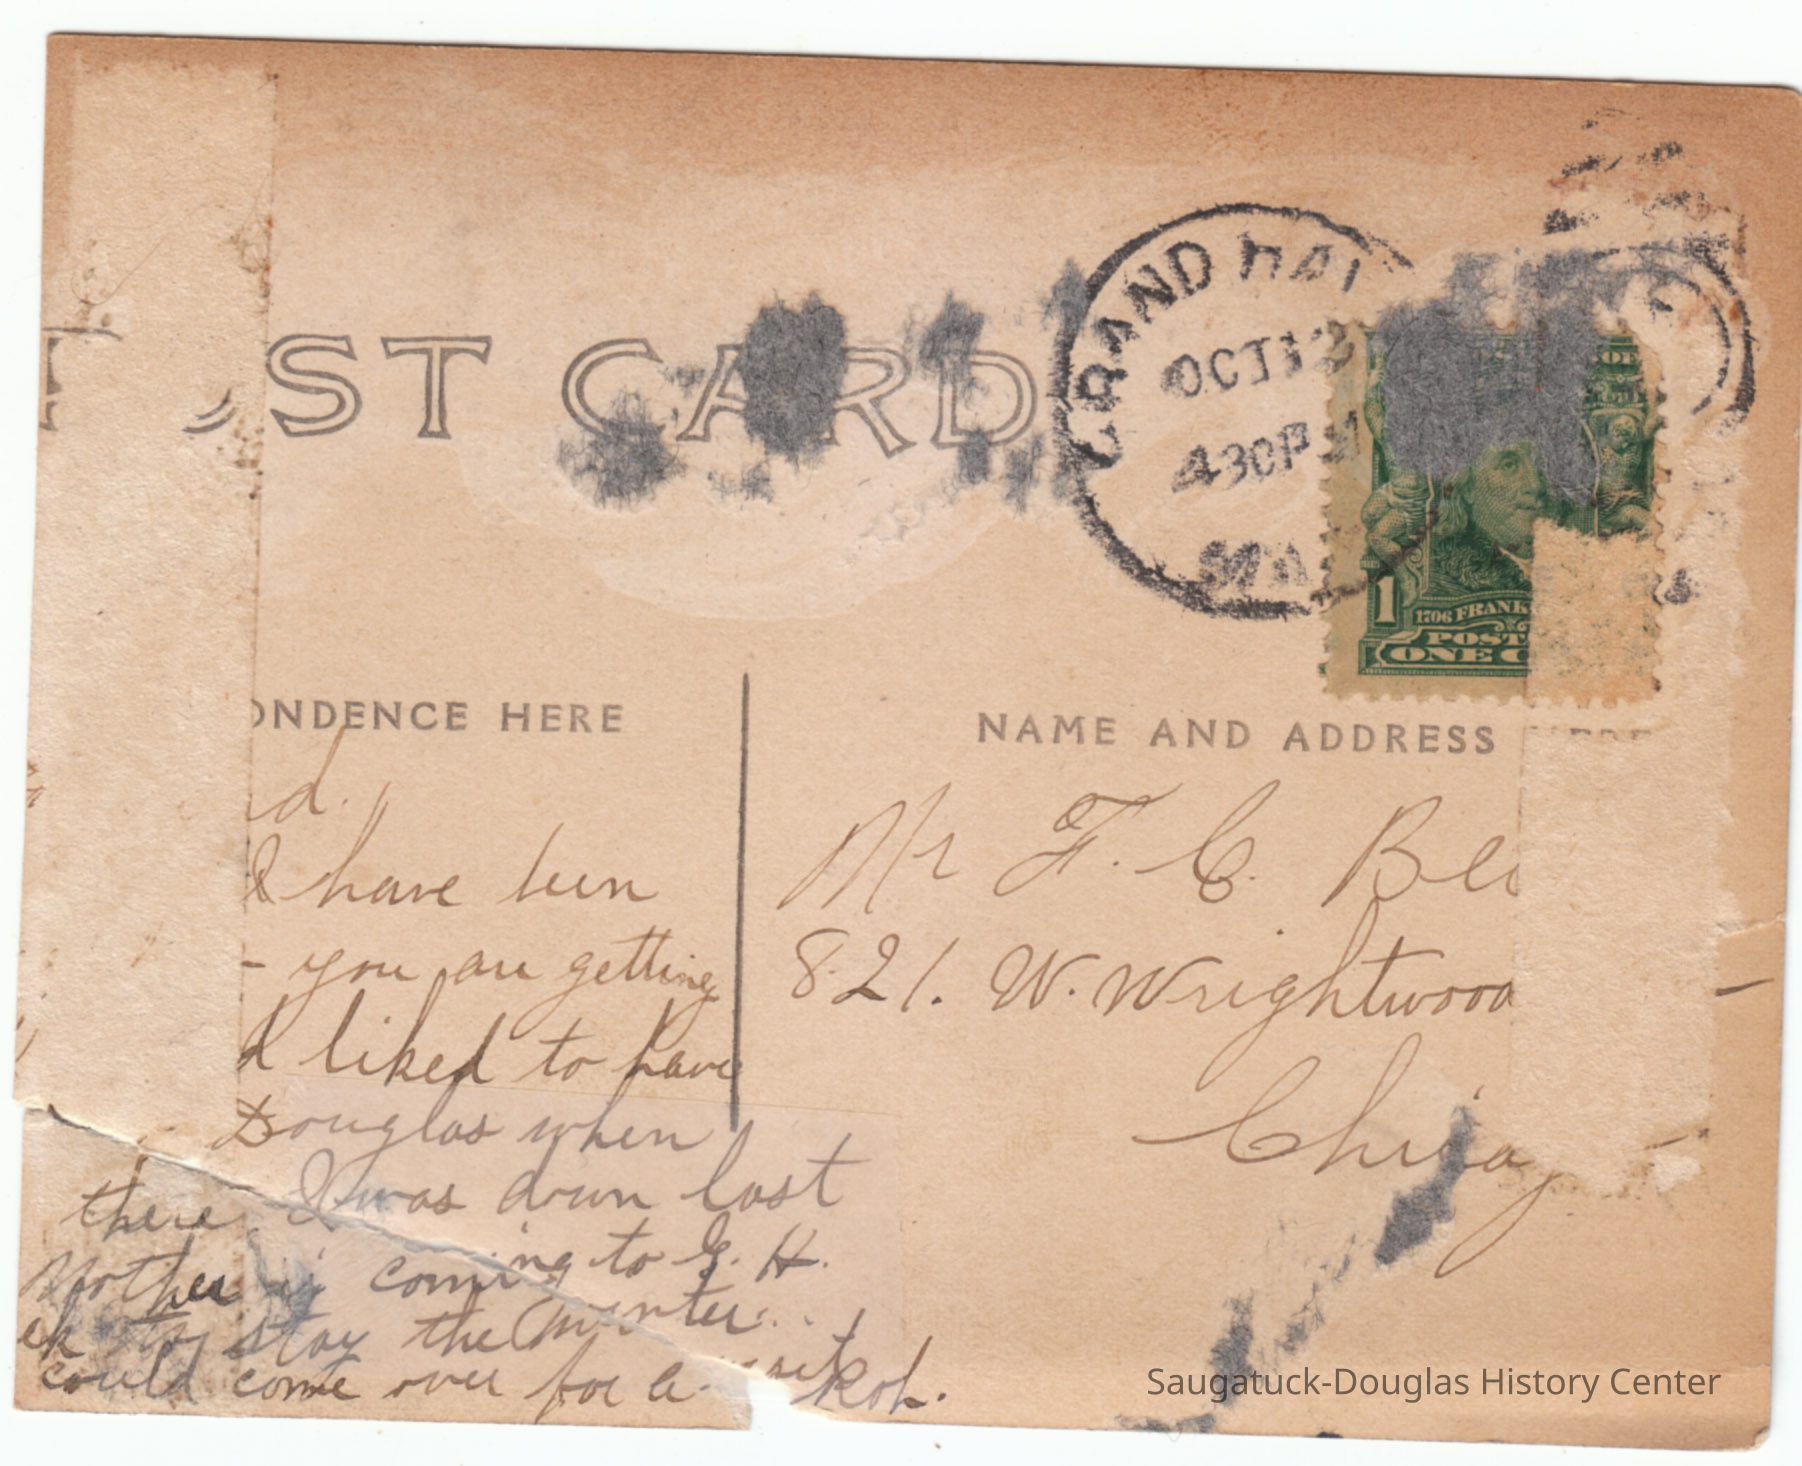 OST CARD
GRAND HA
OCT 12
430 P M
OF
1
1706 FRANK
POST
ONE C
ONDENCE HERE
NAME AND ADDRESS
d.
I have been
- you are getting
d liked to have
Douglas when
there I was down last
Mother is coming to G. H.
ek to stay the winter.
could come over for a visit Rob.
Mr F. C. Bl
821. W. Wrightwood
Chicag
Saugatuck-Douglas History Center